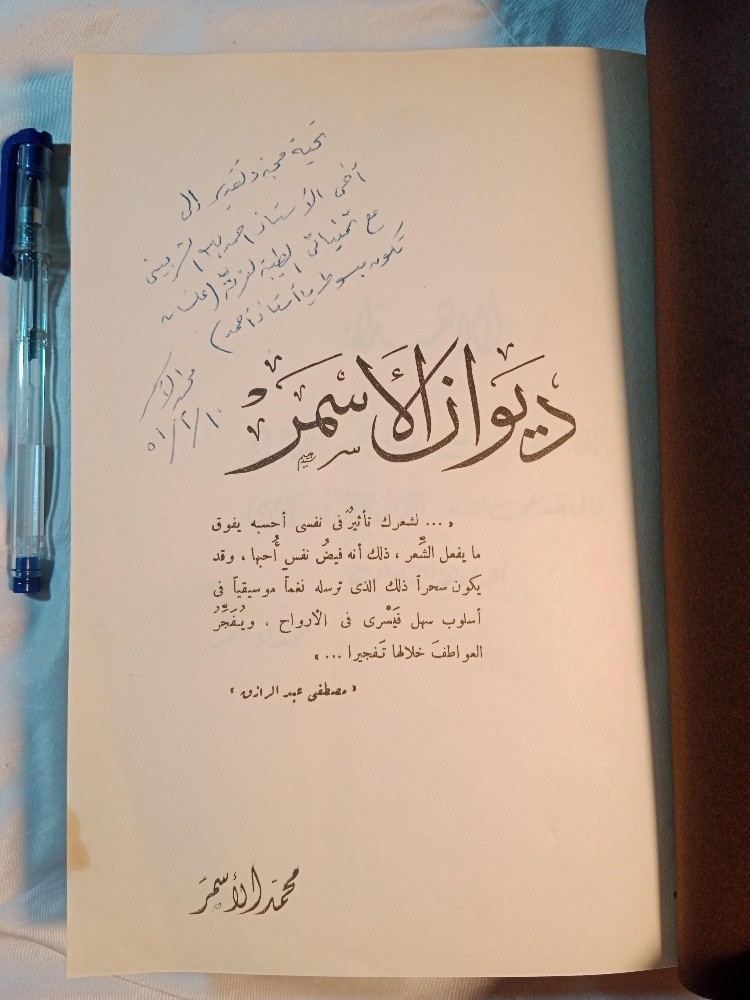 تحية محبة وتقدير إلى
أخى الأستاذ أحمد الشربينى
مع تمنياتى الطيبة
تكون مبسوط يا أستاذ أحمد)
محمد الأسمر
١٠/٢/٥١
ديوان الأسمر
« ... لشعرك تأثيرٌ فى نفسى أحسبه يفوق
ما يفعل الشِّعر ، ذلك أنه فيضُ نفسٍ أُحبها ، وقد
يكون سحراً ذلك الذى ترسله نغماً موسيقياً فى
أسلوب سهل فَيَسْرى فى الأرواح ، ويُفَجِّرُ
العواطفَ خلالها تَفجيرا ... »
« مصطفى عبد الرازق »
محمد الأسمر